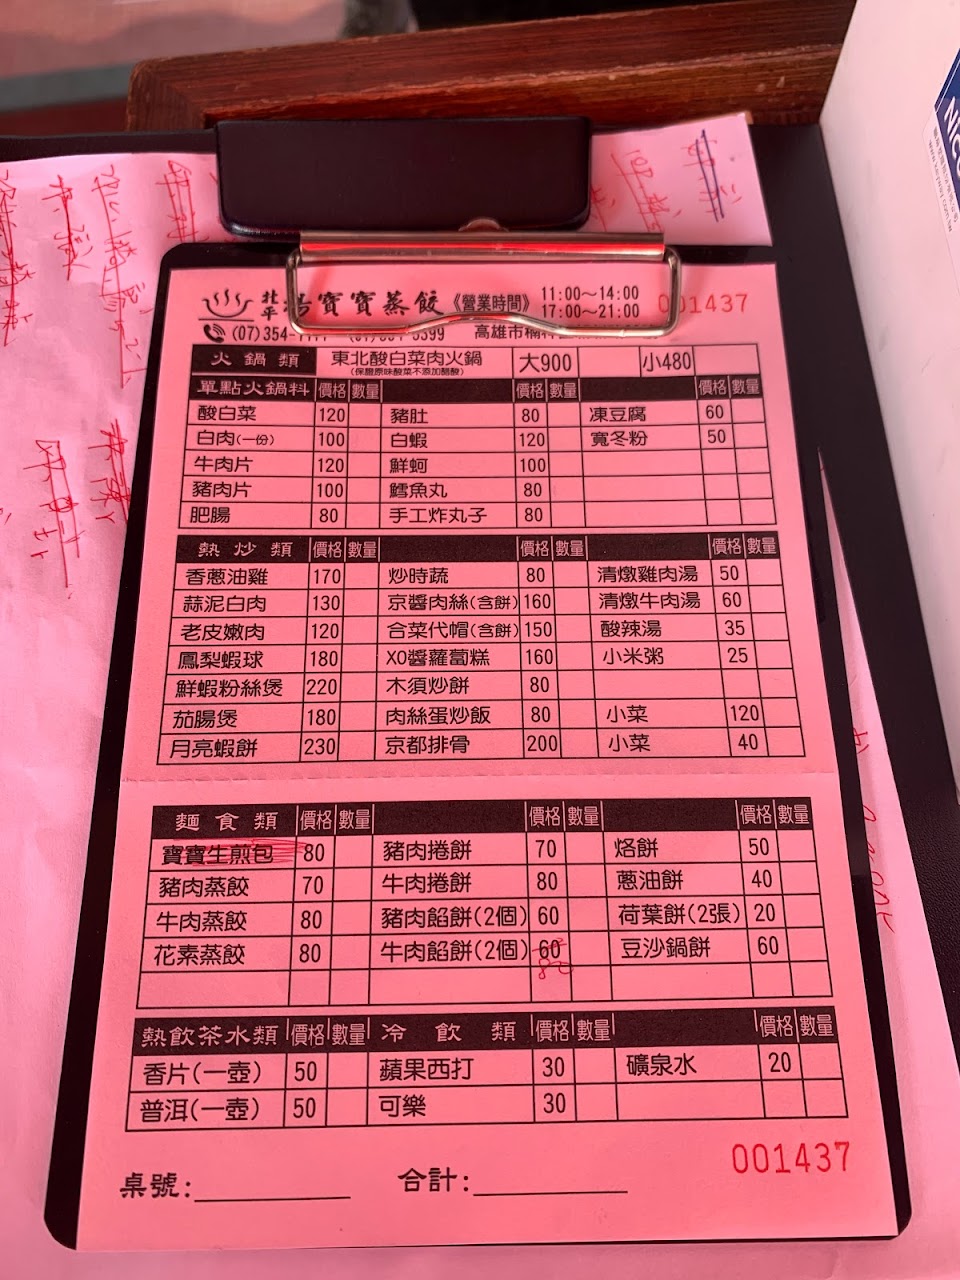 北平 楊寶寶蒸餃 《營業時間》 11:00～14:00 17:00～21:00 001437
(07)354- 高雄市楠
火鍋類 東北酸白菜肉火鍋 (保證原味酸菜不添加醋酸) 大900 小480
單點火鍋料 價格 數量 價格 數量 價格 數量
酸白菜 120 豬肚 80 凍豆腐 60
白肉(一份) 100 白蝦 120 寬冬粉 50
牛肉片 120 鮮蚵 100
豬肉片 100 鱈魚丸 80
肥腸 80 手工炸丸子 80
熱炒類 價格 數量 價格 數量 價格 數量
香蔥油雞 170 炒時蔬 80 清燉雞肉湯 50
蒜泥白肉 130 京醬肉絲(含餅) 160 清燉牛肉湯 60
老皮嫩肉 120 合菜代帽(含餅) 150 酸辣湯 35
鳳梨蝦球 180 XO醬蘿蔔糕 160 小米粥 25
鮮蝦粉絲煲 220 木須炒餅 80
茄腸煲 180 肉絲蛋炒飯 80 小菜 120
月亮蝦餅 230 京都排骨 200 小菜 40
麵食類 價格 數量 價格 數量 價格 數量
寶寶生煎包 80 豬肉捲餅 70 烙餅 50
豬肉蒸餃 70 牛肉捲餅 80 蔥油餅 40
牛肉蒸餃 80 豬肉餡餅(2個) 60 荷葉餅(2張) 20
花素蒸餃 80 牛肉餡餅(2個) 60 豆沙鍋餅 60
80
熱飲茶水類 價格 數量 冷飲類 價格 數量 價格 數量
香片(一壺) 50 蘋果西打 30 礦泉水 20
普洱(一壺) 50 可樂 30
001437
桌號: 合計: